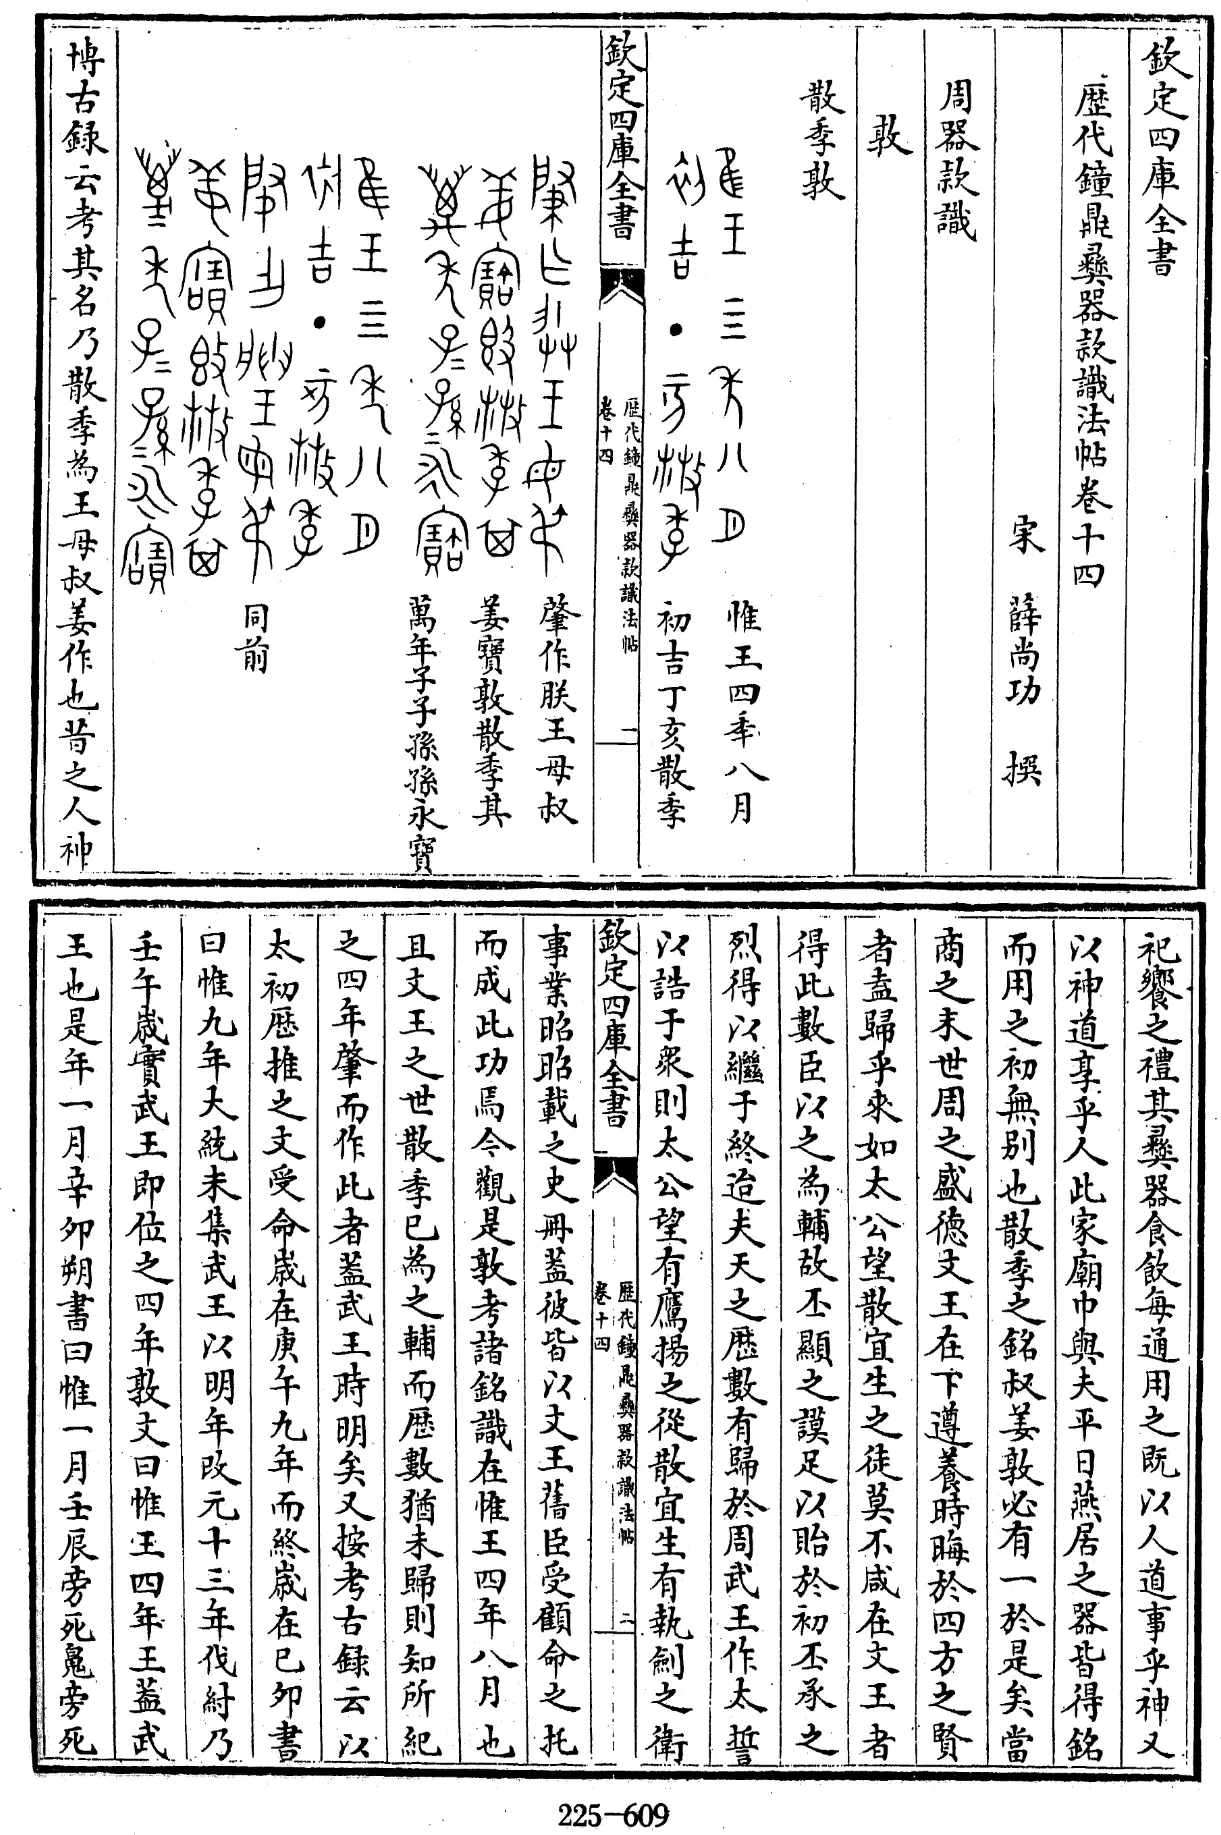 欽定四庫全書
歴代鐘鼎彝器款識法帖卷十四
宋 薛尚功 撰
周器款識
敦
散季敦
惟王四年八月
初吉丁亥散季
欽定四庫全書
歴代鐘鼎彝器款識法帖
卷十四
一
肇作朕王母叔
姜寶敦散季其
萬年子子孫孫永寶
同前
博古録云考其名乃散季為王母叔姜作也昔之人神
祀饗之禮其彝器食飲每通用之既以人道事乎神又
以神道享乎人此家廟中與夫平日燕居之器皆得銘
而用之初無别也散季之銘叔姜敦必有一於是矣當
商之末世周之盛徳文王在下遵養時晦於四方之賢
者盍歸乎來如太公望散宜生之徒莫不咸在文王者
得此數臣以之為輔故丕顯之謨足以貽於初丕承之
烈得以繼于終迨夫天之歴數有歸於周武王作太誓
以誥于衆則太公望有鷹揚之從散宜生有執劍之衛
欽定四庫全書
歴代鐘鼎彝器款識法帖
卷十四
二
事業昭昭載之史冊蓋彼皆以文王舊臣受顧命之托
而成此功焉今觀是敦考諸銘識在惟王四年八月也
且文王之世散季已為之輔而歴數猶未歸則知所紀
之四年肇而作此者蓋武王時明矣又按考古録云以
太初歴推之文受命嵗在庚午九年而終嵗在己卯書
曰惟九年大統未集武王以明年改元十三年伐紂乃
壬午嵗實武王即位之四年敦文曰惟王四年王蓋武
王也是年一月辛卯朔書曰惟一月壬辰旁死魄旁死
225-609